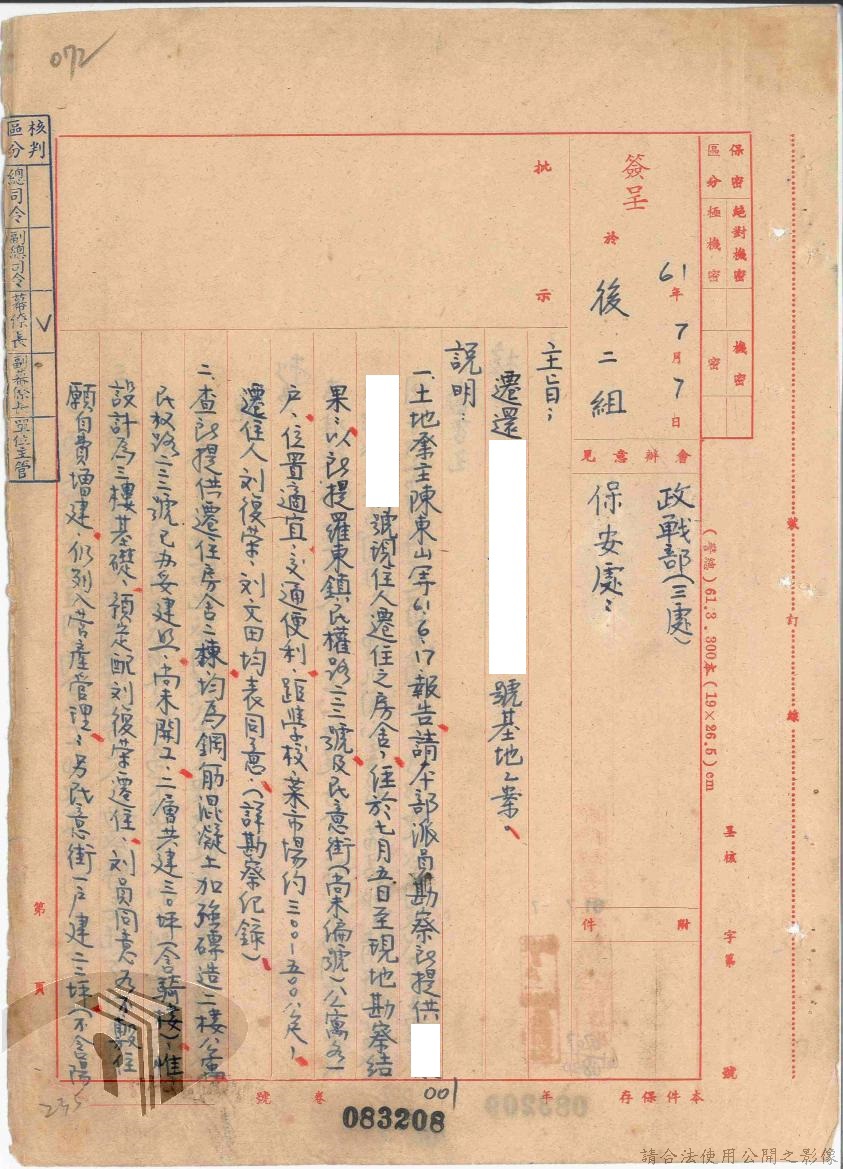 072
保密區分
絕對機密
極機密
機密
密
簽呈
於
61年7月7日
後二組
會辦意見
政戰部(三處)
保安處:
附件
批示
主旨:
遷還
號基地乙案。
說明:
一、土地業主陳東山等61.6.17報告請本部派員勘察所提供
號現住人遷住之房舍,經於七月五日至現地勘察結
果:以所提羅東鎮民權路二三號及民意街(尚未編號)公寓各一
戶,位置適宜,交通便利,距學校、菜市場約三00-五00公尺,
遷住人刘復荣、刘文田均表同意。(詳勘察紀錄)
二、查所提供遷住房舍二棟,均為鋼筋混凝土加強磚造二樓公寓
民权路二三號已办妥建照,尚未開工,二層共建三0坪(含騎樓),惟
設計為三樓基礎,預定配刘復荣遷住,刘員同意如不敷住
願自費增建,仍列入营產管理;另民意街一戶建二二坪(不含陽
核判區分
總司令
副總司令
幕僚長
副幕僚長
單位主管
(警總)61.3.300本(19×26.5)cm
裝訂線
呈核
字第
號
第
頁
235
本件保存
年
卷
號
001
083208
請合法使用公開之影像